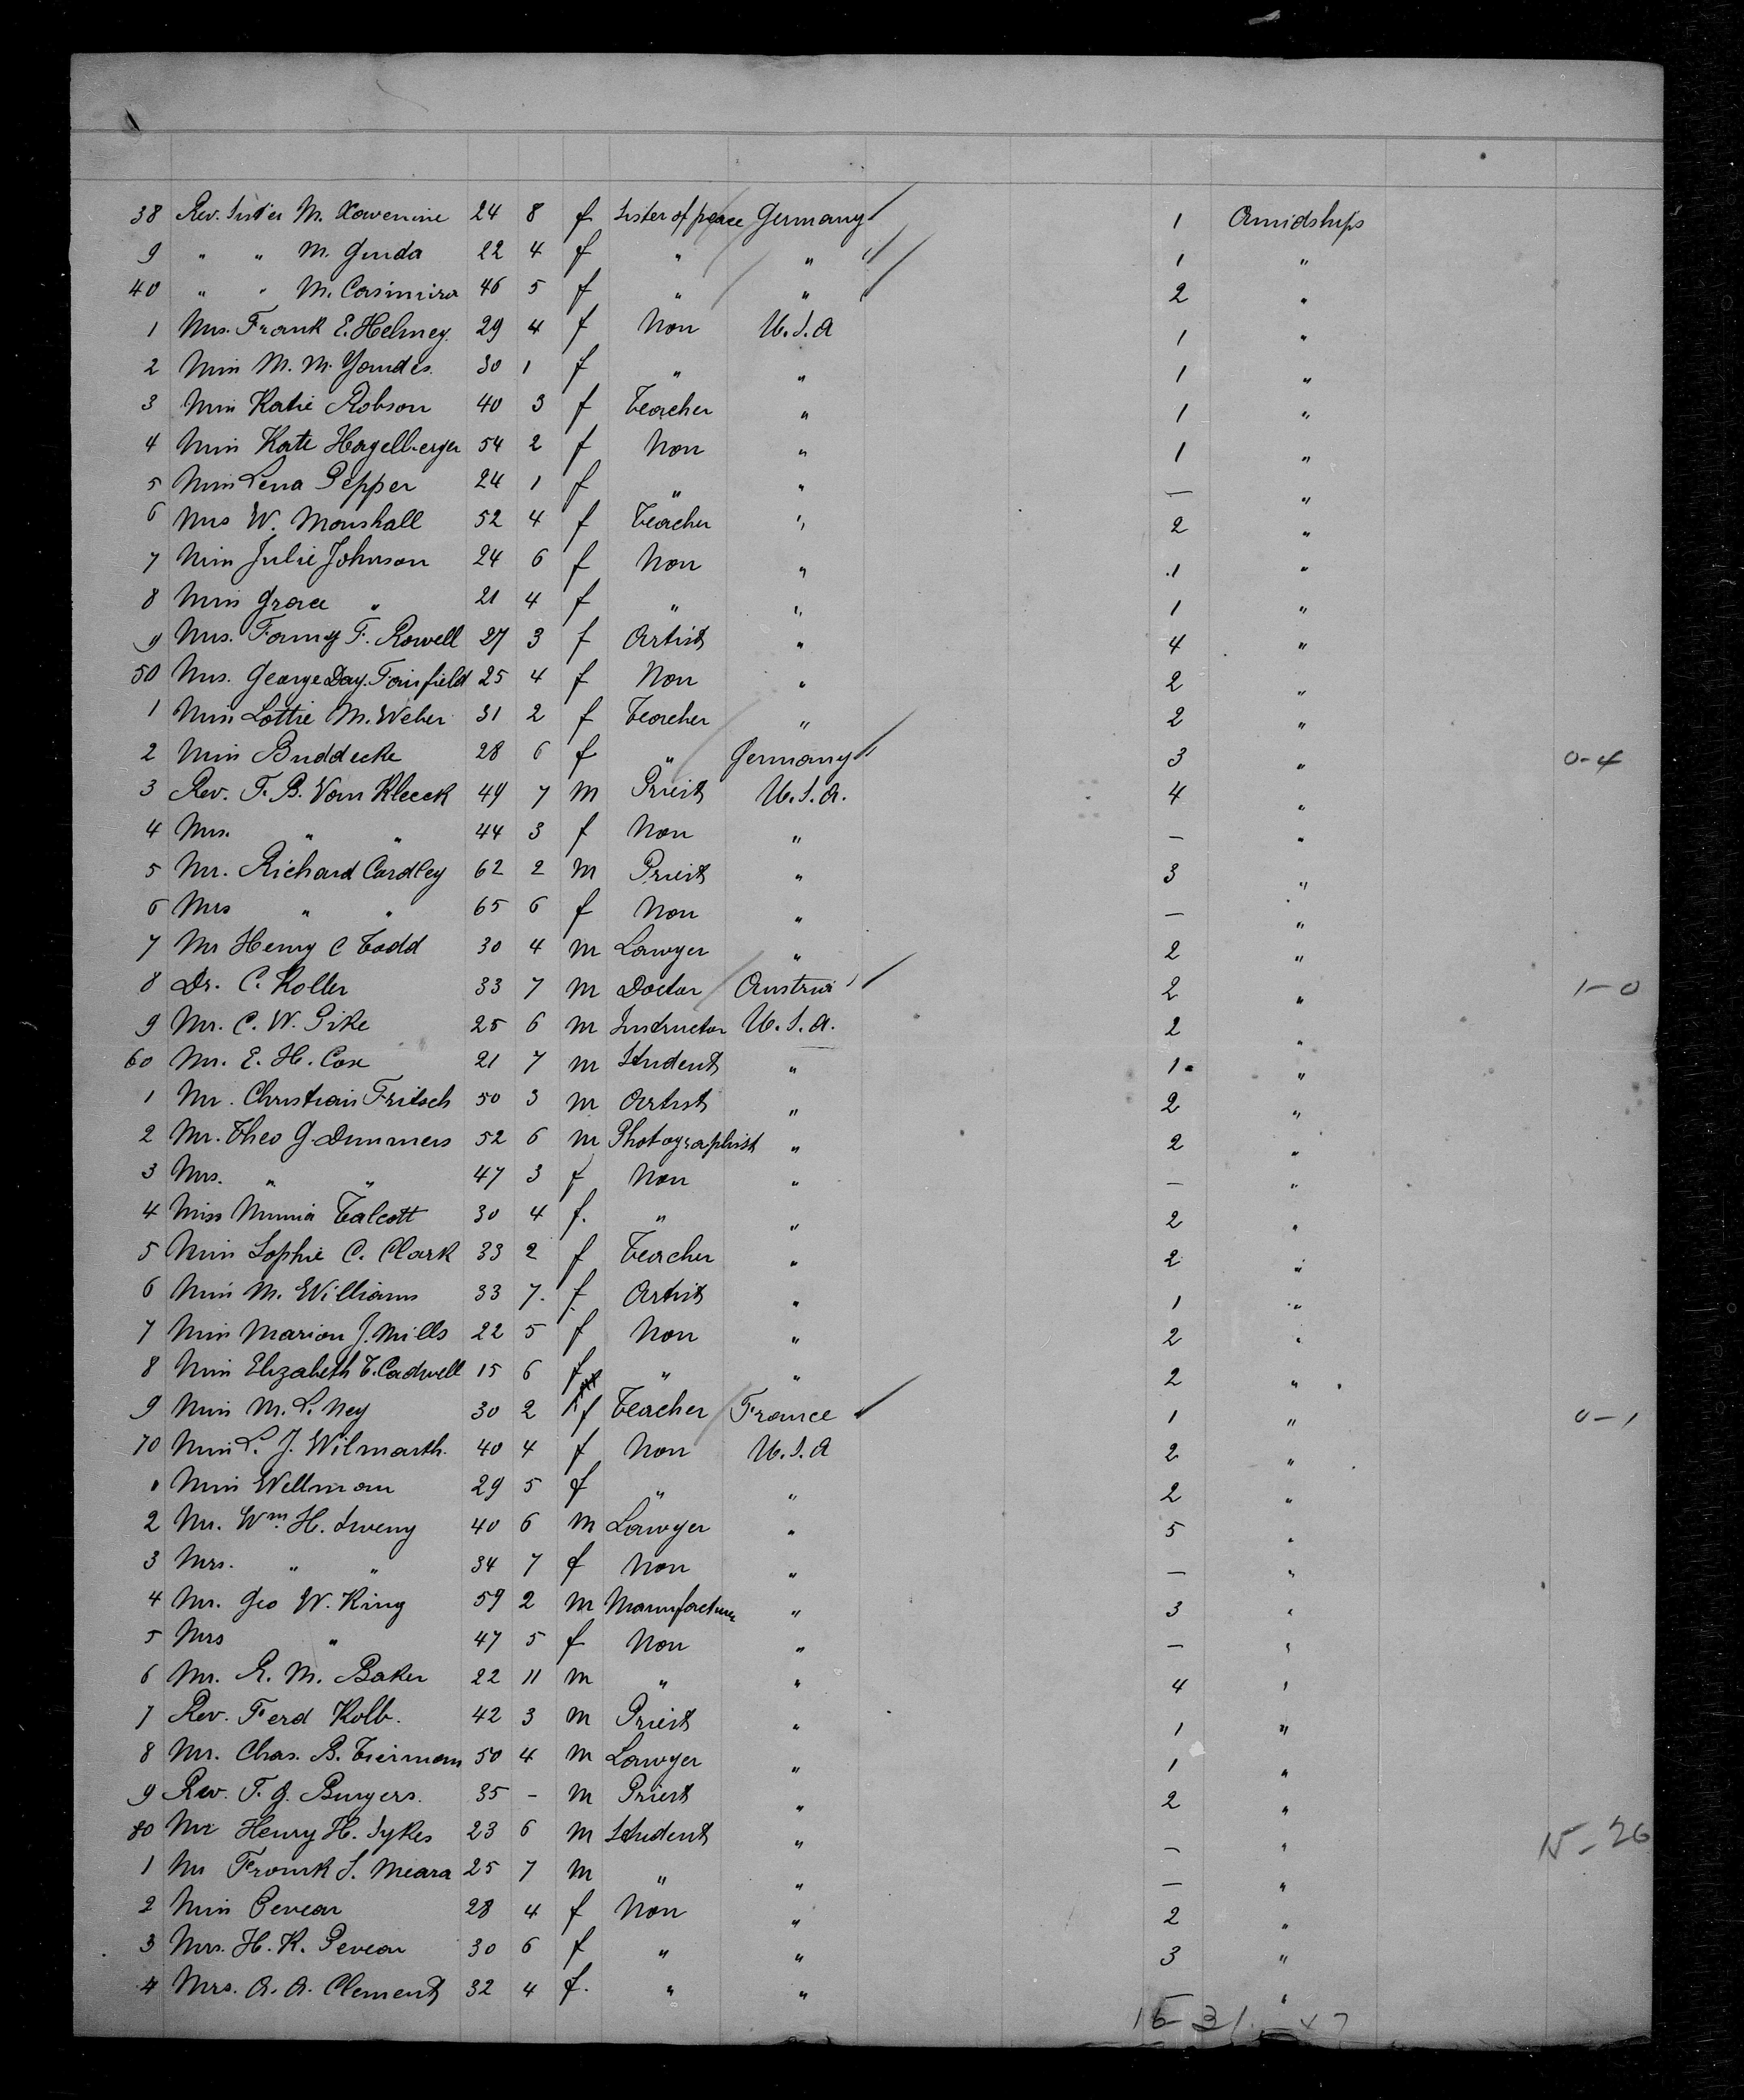 38 Rev. Sister M. Xaverine 24 8 f Sister of peace Germany 1 Amidships
9 " " M. Gerda 22 4 f " " 1 "
40 " " M. Casimira 46 5 f " " 2 "
1 Mrs. Frank E. Helmey. 29 4 f Non U.S.A 1 "
2 Miss M. M. Yandes. 30 1 f " " 1 "
3 Miss Katie Robson 40 3 f Teacher " 1 "
4 Miss Kate Hagelberger 54 2 f Non " 1 "
5 Miss Lena Pepper 24 1 f " " — "
6 Mrs W. Marshall 52 4 f Teacher " 2 "
7 Miss Julie Johnson 24 6 f Non " 1 "
8 Miss Grace " 21 4 f " " 1 "
9 Mrs. Fanny F. Rowell 27 3 f Artist " 4 "
50 Mrs. George Day. Fairfield 25 4 f Non " 2 "
1 Miss Lottie M. Weber 31 2 f Teacher " 2 "
2 Miss Buddecke 28 6 f " Germany 3 " 0-4
3 Rev. F. B. Van Kleeck 49 7 M Priest U.S.A. 4 "
4 Mrs. " " 44 3 f Non " — "
5 Mr. Richard Cordley 62 2 M Priest " 3 "
6 Mrs " " 65 6 f Non " — "
7 Mr Henry C Todd 30 4 M Lawyer " 2 "
8 Dr. C. Koller 33 7 M Doctor Austria 2 " 1-0
9 Mr. C. W. Pike 25 6 M Instructor U.S.A. 2 "
60 Mr. E. H. Cox 21 7 M Student " 1 "
1 Mr. Christian Fritsch 50 3 M Artist " 2 "
2 Mr. Theo G. Dimmers 52 6 M Photographist " 2 "
3 Mrs. " " 47 3 f Non " — "
4 Miss Minnia Talcott 30 4 f. " " 2 "
5 Miss Sophie C. Clark 33 2 f Teacher " 2 "
6 Miss M. Williams 33 7. f. Artist " 1 "
7 Miss Marion J. Mills 22 5 f Non " 2 "
8 Miss Elizabeth T. Cadwell 15 6 f " " 2 "
9 Miss M. L. Ney 30 2 f Teacher France 1 " 0-1
70 Miss L. J. Wilmarth. 40 4 f Non U.S.A 2 "
1 Miss Wellman 29 5 f " " 2 "
2 Mr. Wm. H. Sweny 40 6 M Lawyer " 5 "
3 Mrs. " " 34 7 f Non " — "
4 Mr. Geo W. King 59 2 M Manufacturer " 3 "
5 Mrs " 47 5 f Non " — "
6 Mr. R. M. Baker 22 11 M " " 4 "
7 Rev. Ferd Kolb. 42 3 M Priest " 1 "
8 Mr. Chas. B. Tiernan 50 4 M Lawyer " 1 "
9 Rev. F. G. Burgers. 35 - M Priest " 2 "
80 Mr Henry H. Sykes 23 6 M Student " — " 15-26
1 Mr Frank S. Meara 25 7 M " " — "
2 Miss Pevear 28 4 f Non " 2 "
3 Mrs. H. K. Pevear 30 6 f " " 3 "
4 Mrs. A. A. Clement 32 4 f. " " — "